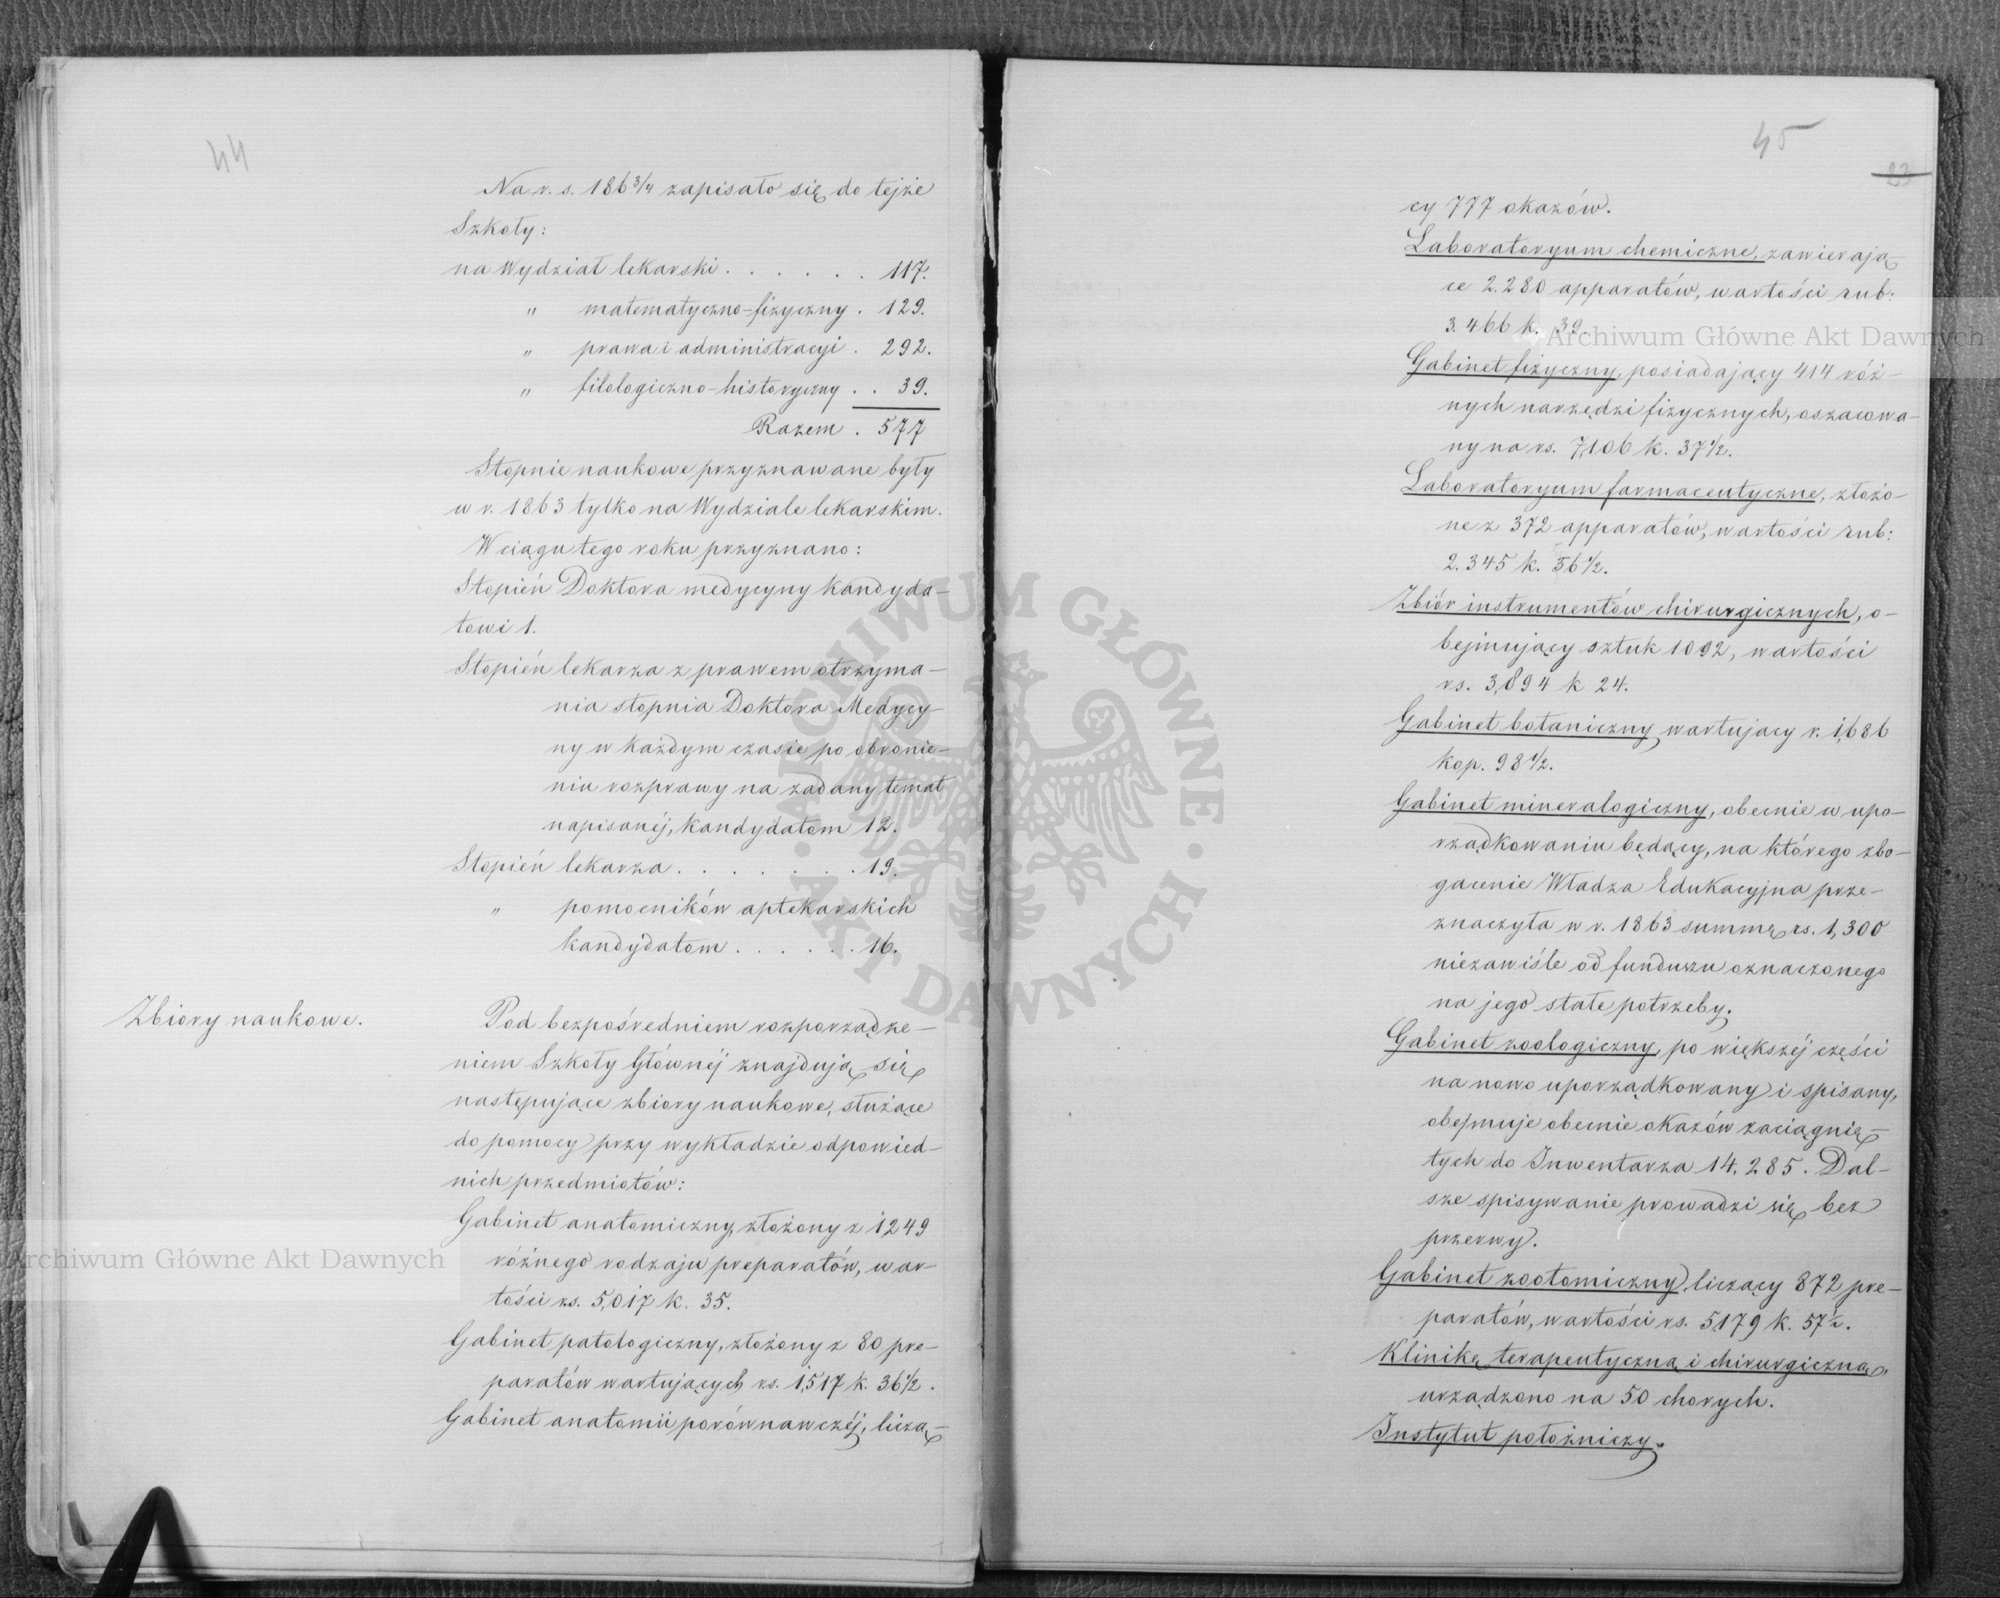 44
Na r. s. 186 3/4 zapisało się do tejże
Szkoły:
na Wydział lekarski . . . . . . 117.
" matematyczno-fizyczny . 129.
" prawa i administracyi . 292.
" filologiczno-historyczny . . 39.
Razem . 577
Stopnie naukowe przyznawane były
w r. 1863 tylko na Wydziale lekarskim.
W ciągu tego roku przyznano:
Stopień Doktora medycyny kandyda-
towi 1.
Stopień lekarza z prawem otrzyma-
nia stopnia Doktora Medycy-
ny w każdym czasie po obronie-
niu rozprawy na zadany temat
napisanéj, kandydatom 12.
Stopień lekarza . . . . . . . 19.
" pomocników aptekarskich
kandydatom . . . . . . 16.
Zbiory naukowe.
Pod bezpośredniem rozporządze-
niem Szkoły Głównéj znajdują się
następujące zbiory naukowe, służące
do pomocy przy wykładzie odpowied-
nich przedmiotów:
Gabinet anatomiczny, złożony z 1249
różnego rodzaju preparatów, war-
tości rs. 5,017 k. 35.
Gabinet patologiczny, złożony z 80 pre-
paratów wartujących rs. 1,517 k. 36 1/2.
Gabinet anatomii porównawczéj, liczą-
45
23
cy 777 okazów.
Laboratoryum chemiczne, zawierają-
ce 2.280 apparatów, wartości rub:
3.466 k. 39.
Gabinet fizyczny, posiadający 414 róż-
nych narzędzi fizycznych, oszacowa-
ny na rs. 7,106 k. 37 1/2.
Laboratoryum farmaceutyczne, złożo-
ne z 372 apparatów, wartości rub:
2.345 k. 56 1/2.
Zbiór instrumentów chirurgicznych, o-
bejmujący sztuk 1092, wartości
rs. 3,894 k 24.
Gabinet botaniczny wartujacy r. 1,686
kop. 98 1/2.
Gabinet mineralogiczny, obecnie w upo-
rządkowaniu będący, na którego zbo-
gacenie Władza Edukacyjna prze-
znaczyła w r. 1863 summę rs. 1,300
niezawiśle od funduszu oznaczonego
na jego stałe potrzeby.
Gabinet zoologiczny, po większéj części
na nowo uporządkowany i spisany,
obejmuje obecnie okazów zaciągnię-
tych do Inwentarza 14.285. Dal-
sze spisywanie prowadzi się bez
przerwy.
Gabinet zootomiczny, liczący 872 pre-
paratów, wartości rs. 5179 k. 57 1/2.
Klinikę terapeutyczną i chirurgiczną,
urządzono na 50 chorych.
Instytut położniczy.
Archiwum Główne Akt Dawnych
Archiwum Główne Akt Dawnych
ARCHIWUM GŁÓWNE · AKT DAWNYCH ·